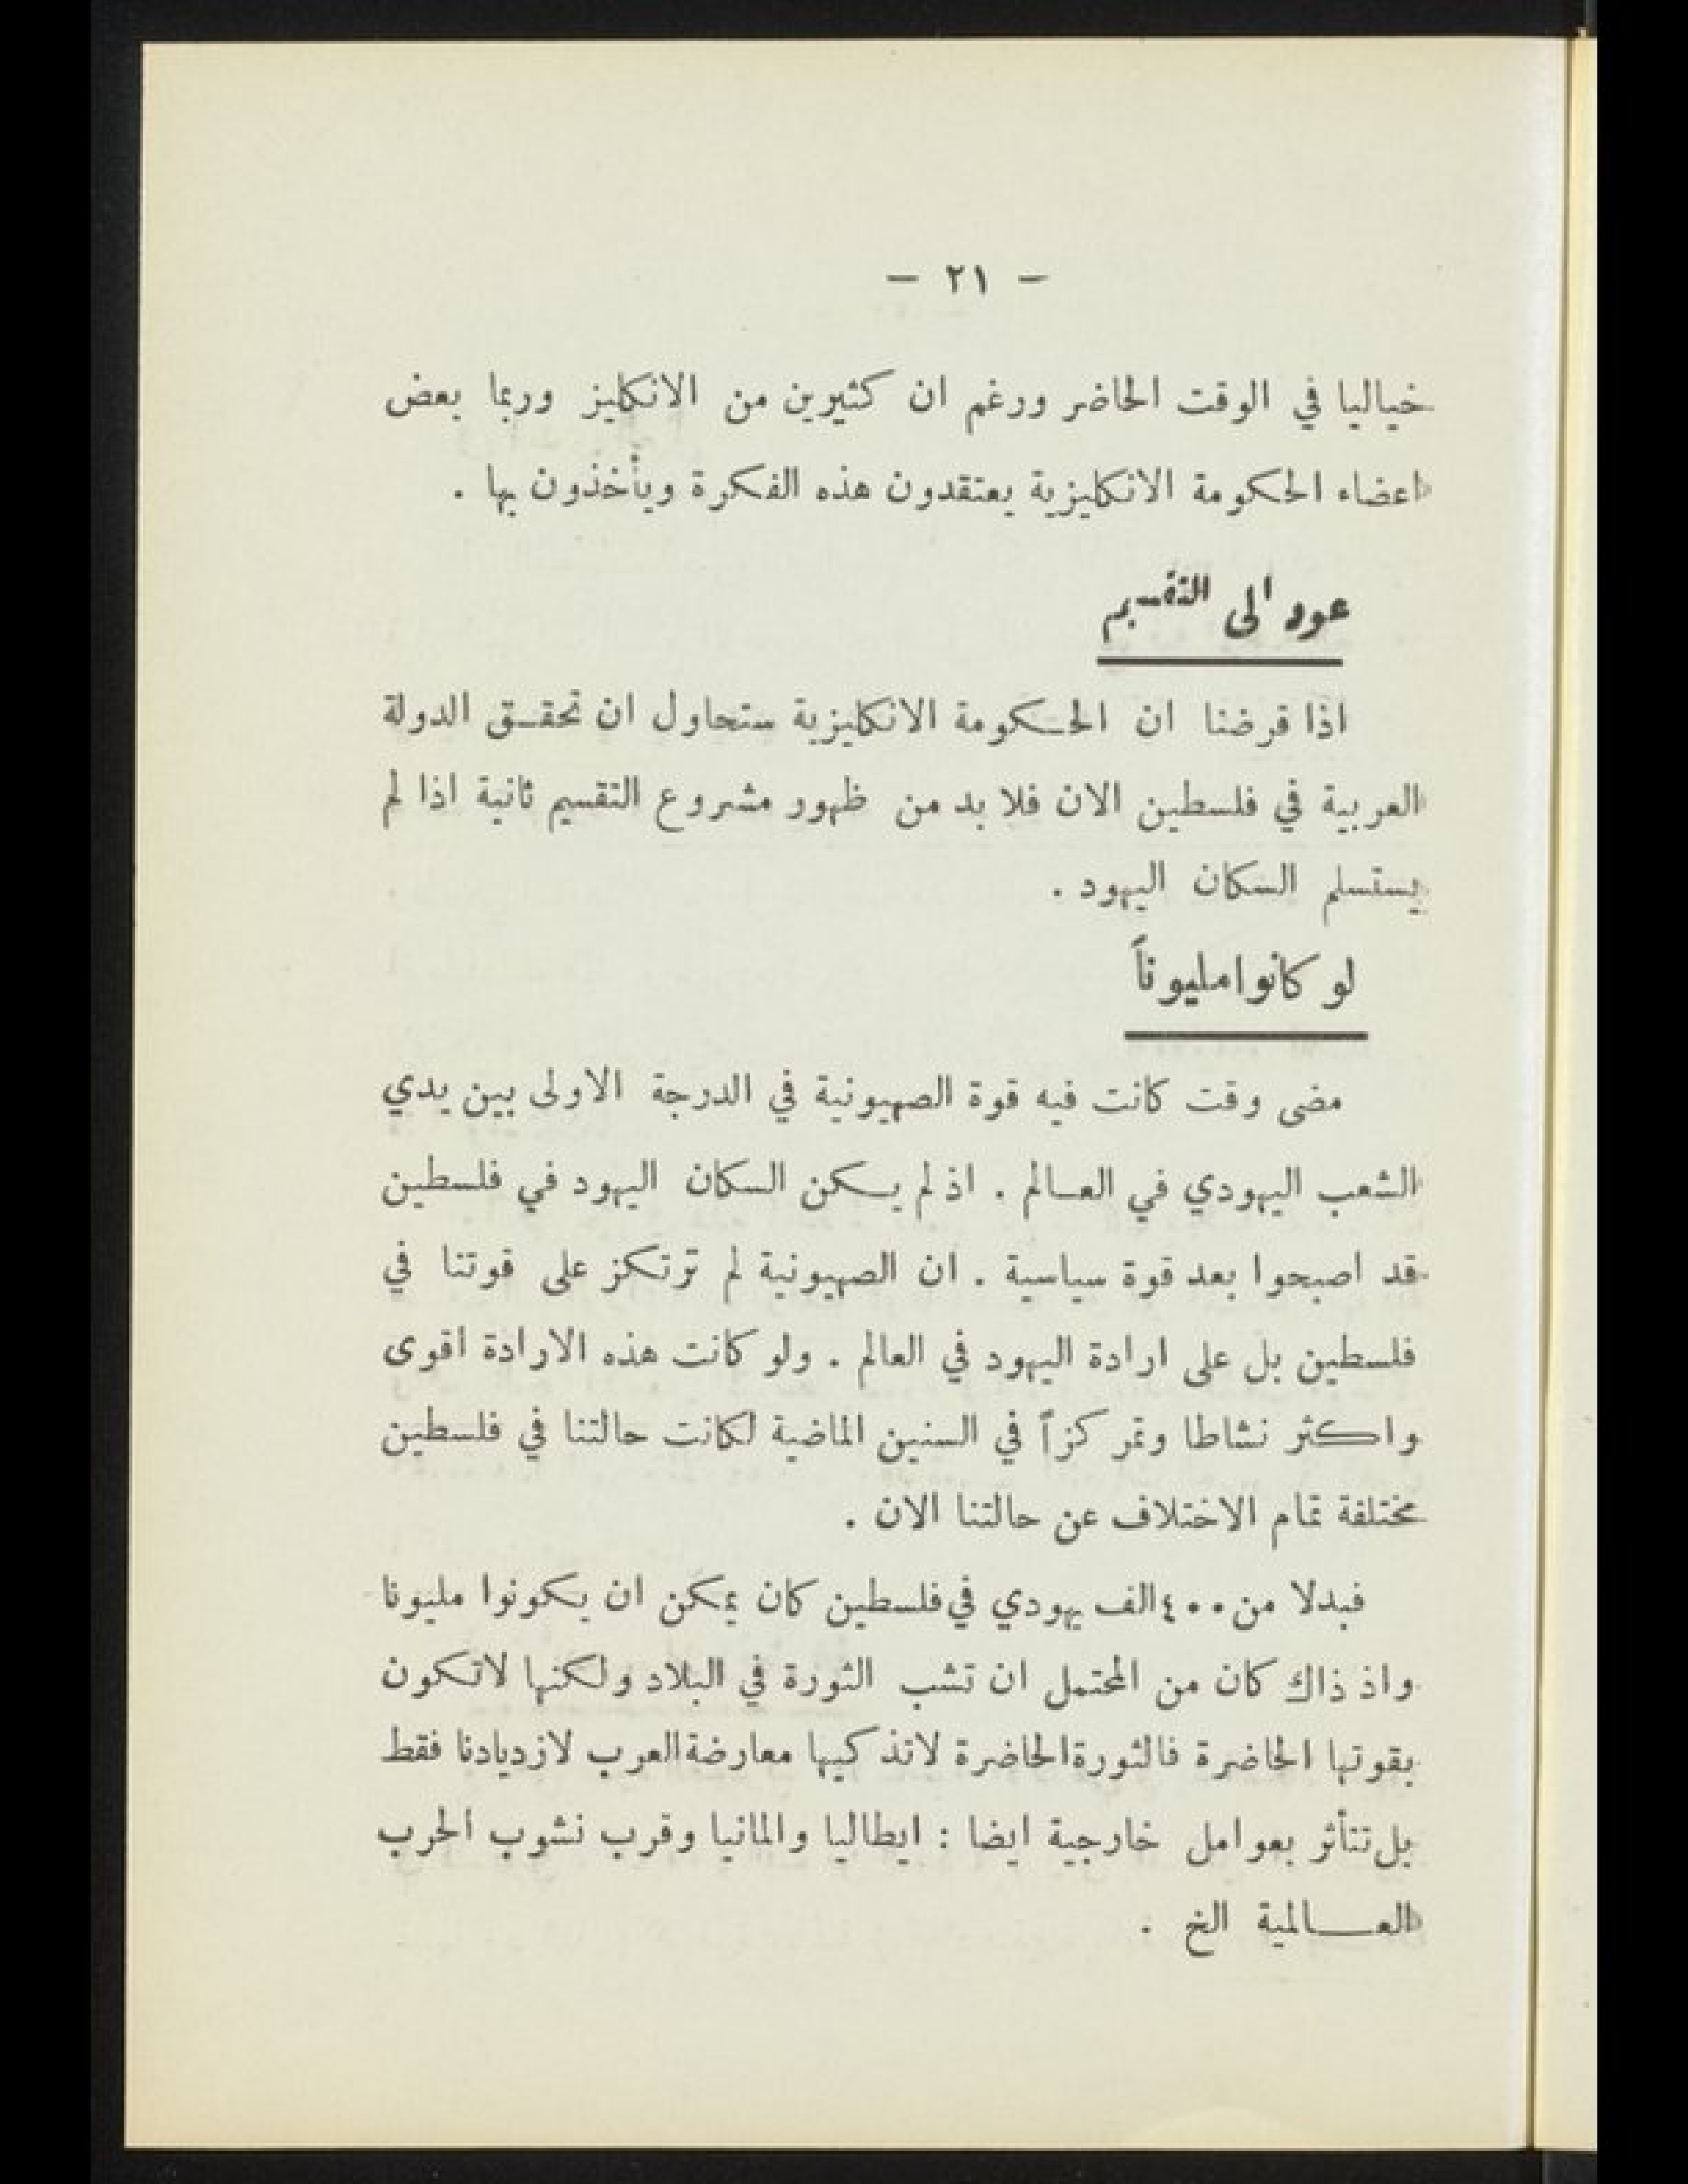 — ٢١ —
خياليا في الوقت الحاضر ورغم ان كثيرين من الانكليز وربما بعض
اعضاء الحكومة الانكليزية يعتقدون هذه الفكرة ويأخذون بها .
عود الى التقسيم
اذا فرضنا ان الحكومة الانكليزية ستحاول ان تحقق الدولة
العربية في فلسطين الان فلا بد من ظهور مشروع التقسيم ثانية اذا لم
يستسلم السكان اليهود .
لو كانوا مليوناً
مضى وقت كانت فيه قوة الصهيونية في الدرجة الاولى بين يدي
الشعب اليهودي في العالم . اذ لم يكن السكان اليهود في فلسطين
قد اصبحوا بعد قوة سياسية . ان الصهيونية لم ترتكز على قوتنا في
فلسطين بل على ارادة اليهود في العالم . ولو كانت هذه الارادة اقوى
واكثر نشاطا وتمركزاً في السنين الماضية لكانت حالتنا في فلسطين
مختلفة تمام الاختلاف عن حالتنا الان .
فبدلا من ٤٠٠ الف يهودي في فلسطين كان يمكن ان يكونوا مليونا
واذ ذاك كان من المحتمل ان تشب الثورة في البلاد ولكنها لاتكون
بقوتها الحاضرة فالثورة الحاضرة لاتذكيها معارضة العرب لازديادنا فقط
بل تتأثر بعوامل خارجية ايضا : ايطاليا والمانيا وقرب نشوب الحرب
العالمية الخ .